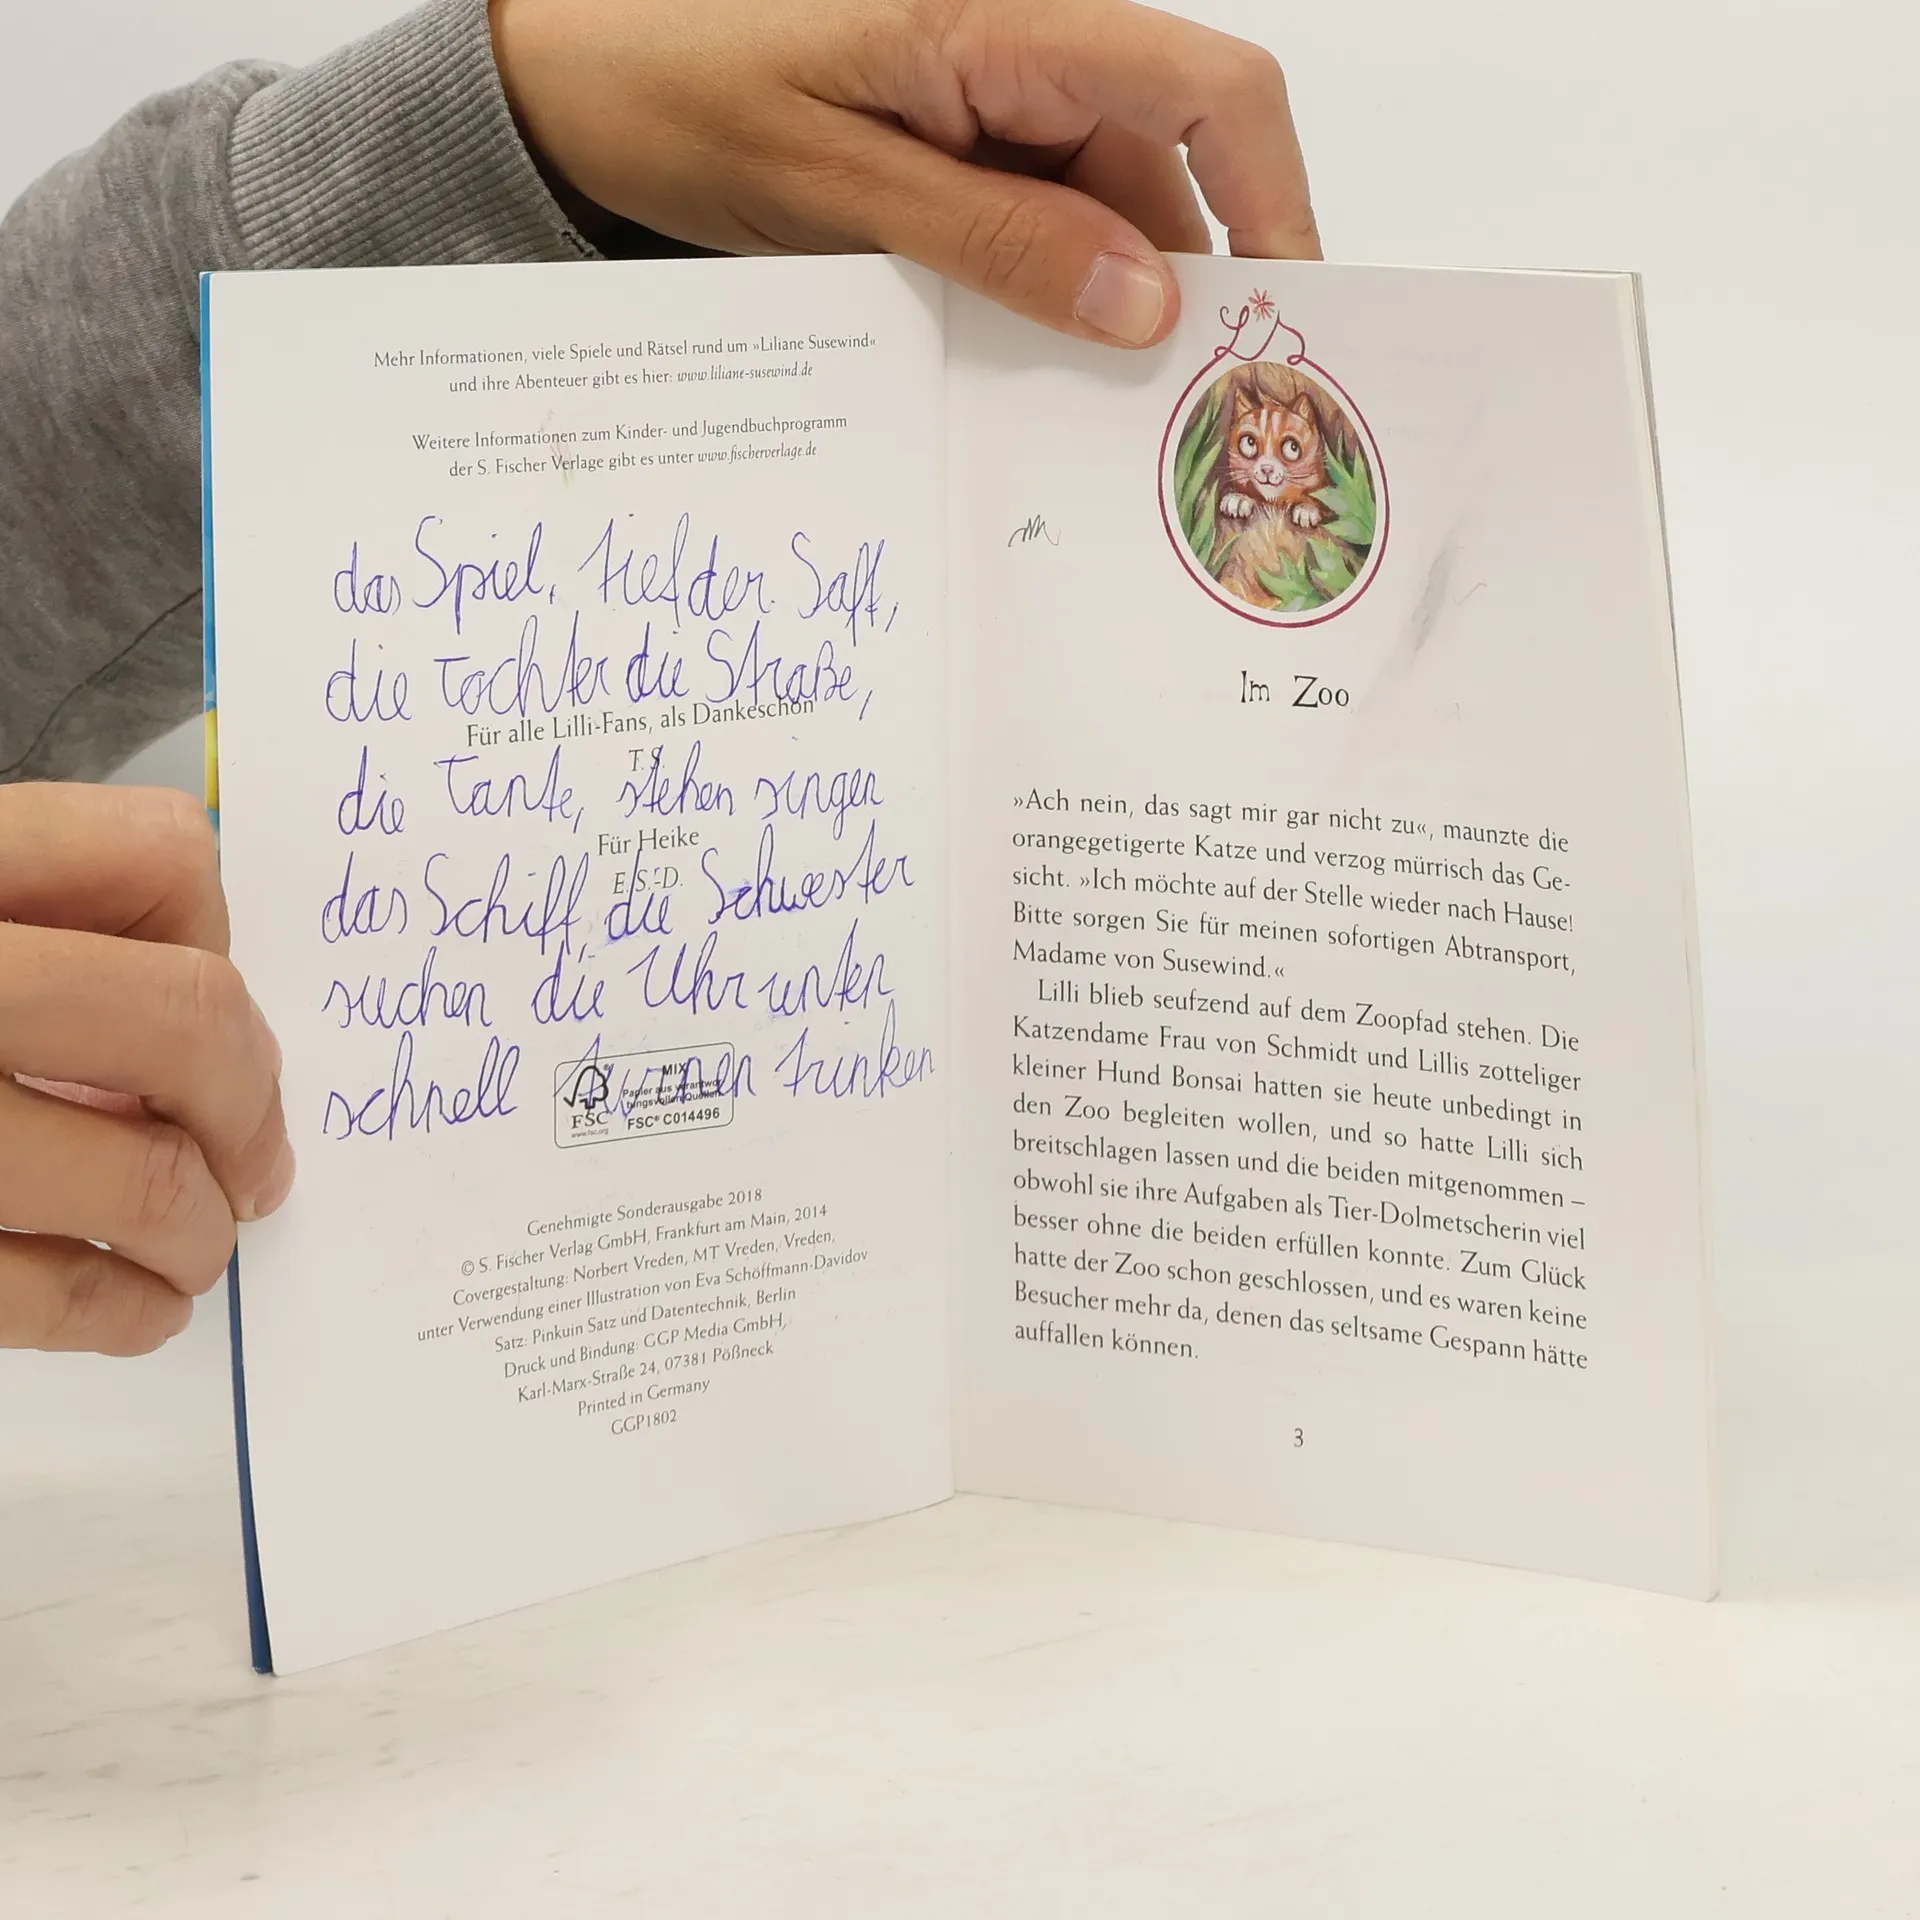 Mehr Informationen, viele Spiele und Rätsel rund um »Liliane Susewind«
und ihre Abenteuer gibt es hier: www.liliane-susewind.de
Weitere Informationen zum Kinder- und Jugendbuchprogramm
der S. Fischer Verlage gibt es unter www.fischerverlage.de
das Spiel, tief der Saft,
die Tochter die Straße,
Für alle Lilli-Fans, als Dankeschön
T. S.
die Tante, stehen singen
Für Heike
E. S.-D.
das Schiff, die Schwester
suchen die Uhr unten
schnell turnen trinken
MIX
Papier aus verantwor-
tungsvollen Quellen
FSC
www.fsc.org
FSC® C014496
Genehmigte Sonderausgabe 2018
© S. Fischer Verlag GmbH, Frankfurt am Main, 2014
Covergestaltung: Norbert Vreden, MT Vreden, Vreden,
unter Verwendung einer Illustration von Eva Schöffmann-Davidov
Satz: Pinkuin Satz und Datentechnik, Berlin
Druck und Bindung: GGP Media GmbH,
Karl-Marx-Straße 24, 07381 Pößneck
Printed in Germany
GGP1802
Im Zoo
»Ach nein, das sagt mir gar nicht zu«, maunzte die
orangegetigerte Katze und verzog mürrisch das Ge-
sicht. »Ich möchte auf der Stelle wieder nach Hause!
Bitte sorgen Sie für meinen sofortigen Abtransport,
Madame von Susewind.«
Lilli blieb seufzend auf dem Zoopfad stehen. Die
Katzendame Frau von Schmidt und Lillis zotteliger
kleiner Hund Bonsai hatten sie heute unbedingt in
den Zoo begleiten wollen, und so hatte Lilli sich
breitschlagen lassen und die beiden mitgenommen –
obwohl sie ihre Aufgaben als Tier-Dolmetscherin viel
besser ohne die beiden erfüllen konnte. Zum Glück
hatte der Zoo schon geschlossen, und es waren keine
Besucher mehr da, denen das seltsame Gespann hätte
auffallen können.
3